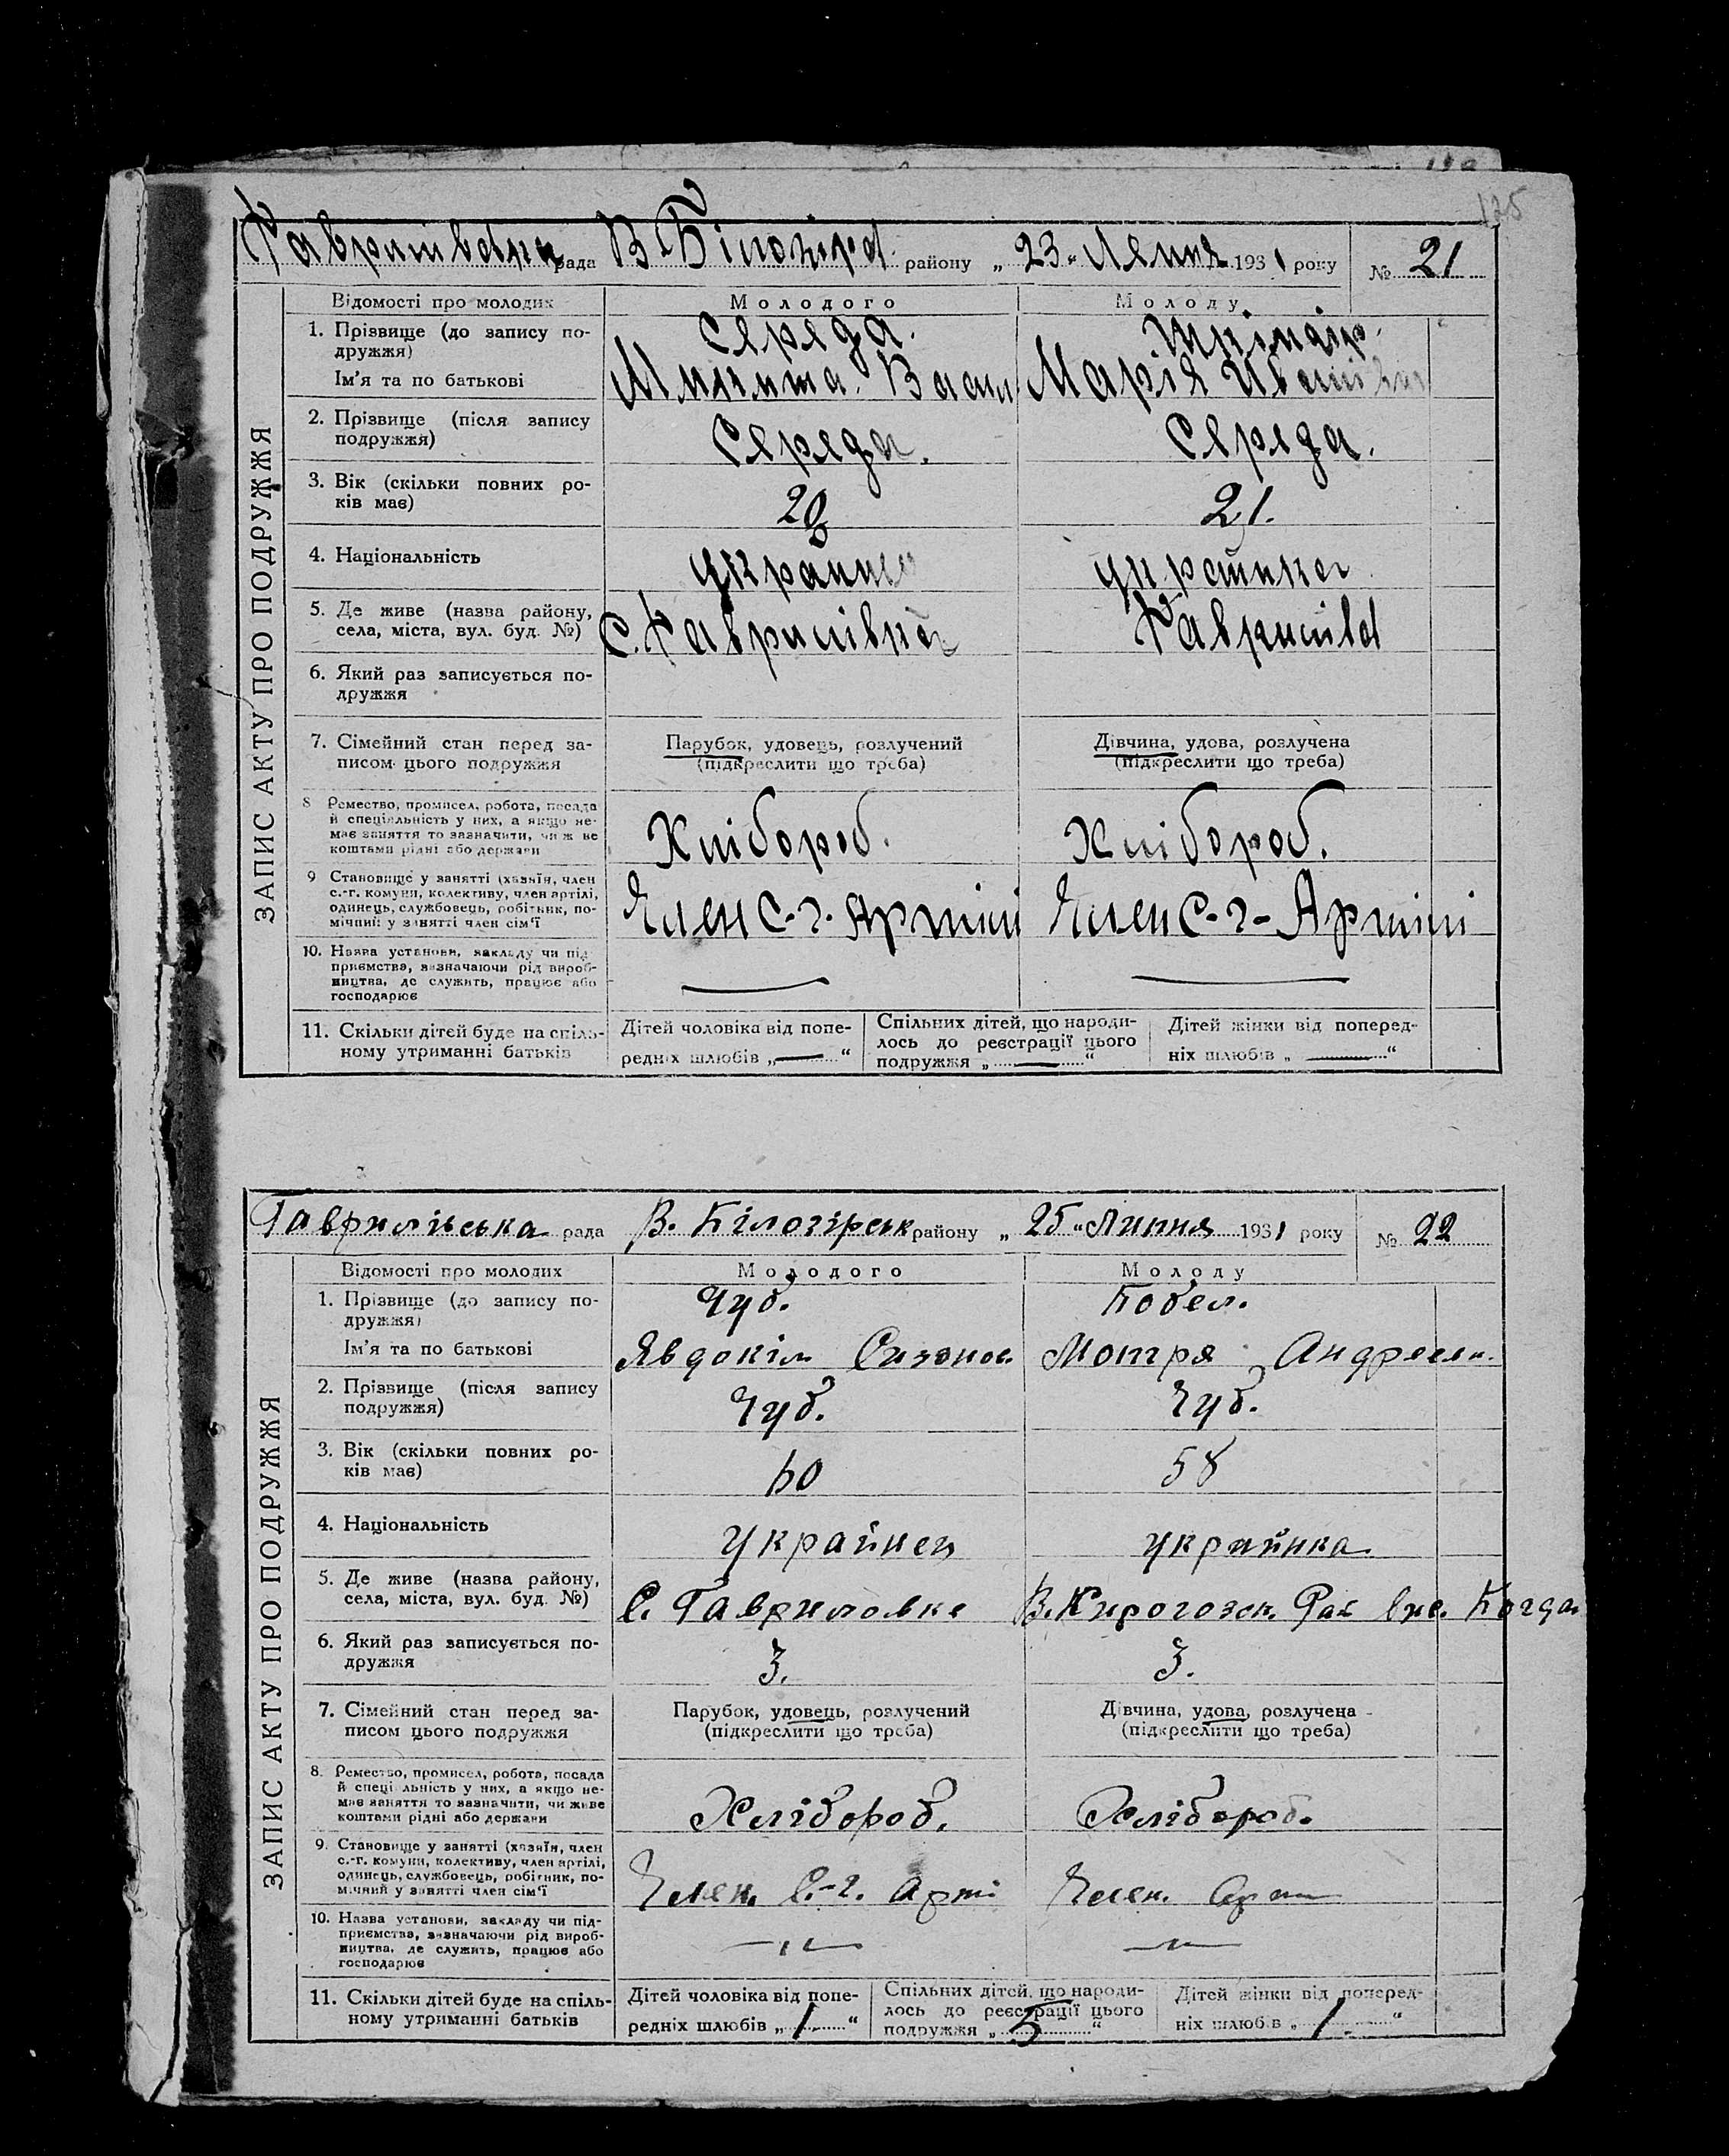 125
рада В Білозірd району „ 23 " Липня 1931 року № 21
ЗАПИС АКТУ ПРО ПОДРУЖЖЯ
Відомості про молодих Молодого Молоду
1. Прізвище (до запису по- Середа.
дружжя)
Ім'я та по батькові Микита Васил Марія Иванівна
2. Прізвище (після запису Середа. Середа.
подружжя)
3. Вік (скільки повних ро- 20 21.
ків має)
4. Національність украинец украинка
5. Де живе (назва району, С. Гаврилівка Гаврилівd
села, міста, вул. буд. №)
6. Який раз записується по-
дружжя
7. Сімейний стан перед за- Парубок, удовець, розлучений Дівчина, удова, розлучена
писом цього подружжя (підкреслити що треба) (підкреслити що треба)
8 Ремество, промисел, робота, посада Хлібороб. Хлібороб.
й спеціяльність у них, а якщо не-
має заняття то зазначити, чи живе
коштами рідні або держави
9 Становище у занятті (хазяїн, член Член С.-г. Артілі Член С-г- Артілі
с.-г. комуни, колективу, член артілі,
одинець, службовець, робітник, по-
мічний у занятті член сім'ї
10. Назва установи, закладу чи під
приємства, зазначаючи рід вироб-
ництва, де служить, працює або
господарює
11. Скільки дітей буде на спіль- Дітей чоловіка від попе- Спільних дітей, що народи- Дітей жінки від поперед-
ному утриманні батьків редніх шлюбів „ — " лось до реєстрації цього ніх шлюбів „ — "
подружжя „ — "
Гаврилівська рада В. Білозірськ району „ 25 " Липня 1931 року № 22
ЗАПИС АКТУ ПРО ПОДРУЖЖЯ
Відомості про молодих Молодого Молоду
1. Прізвище (до запису по- Чуб. Кобел.
дружжя)
Ім'я та по батькові Явдокім Сизонов. Мотря Андреевн.
2. Прізвище (після запису Чуб. Чуб.
подружжя)
3. Вік (скільки повних ро- 60 58
ків має)
4. Національність Украйнец украйнка
5. Де живе (назва району, С. Гавриловка В.
села, міста, вул. буд. №)
6. Який раз записується по- 3. 3.
дружжя
7. Сімейний стан перед за- Парубок, удовець, розлучений Дівчина, удова, розлучена
писом цього подружжя (підкреслити що треба) (підкреслити що треба)
8. Ремество, промисел, робота, посада Хлібороб. Хлібороб.
й спеціяльність у них, а якщо не-
має заняття то зазначити, чи живе
коштами рідні або держави
9. Становище у занятті (хазяїн, член Член. С.-г. Арті Член. Арт
с.-г. комуни, колективу, член артілі,
одинець, службовець, робітник, по-
мічний у занятті член сім'ї
10. Назва установи, закладу чи під- — „ — — „ —
приємства, зазначаючи рід вироб-
ництва, де служить, працює або
господарює
11. Скільки дітей буде на спіль- Дітей чоловіка від попе- Спільних дітей, що народи- Дітей жінки від поперед-
ному утриманні батьків редніх шлюбів „ 1. " лось до реєстрації цього ніх шлюбів „ 1. "
подружжя „ 5 "